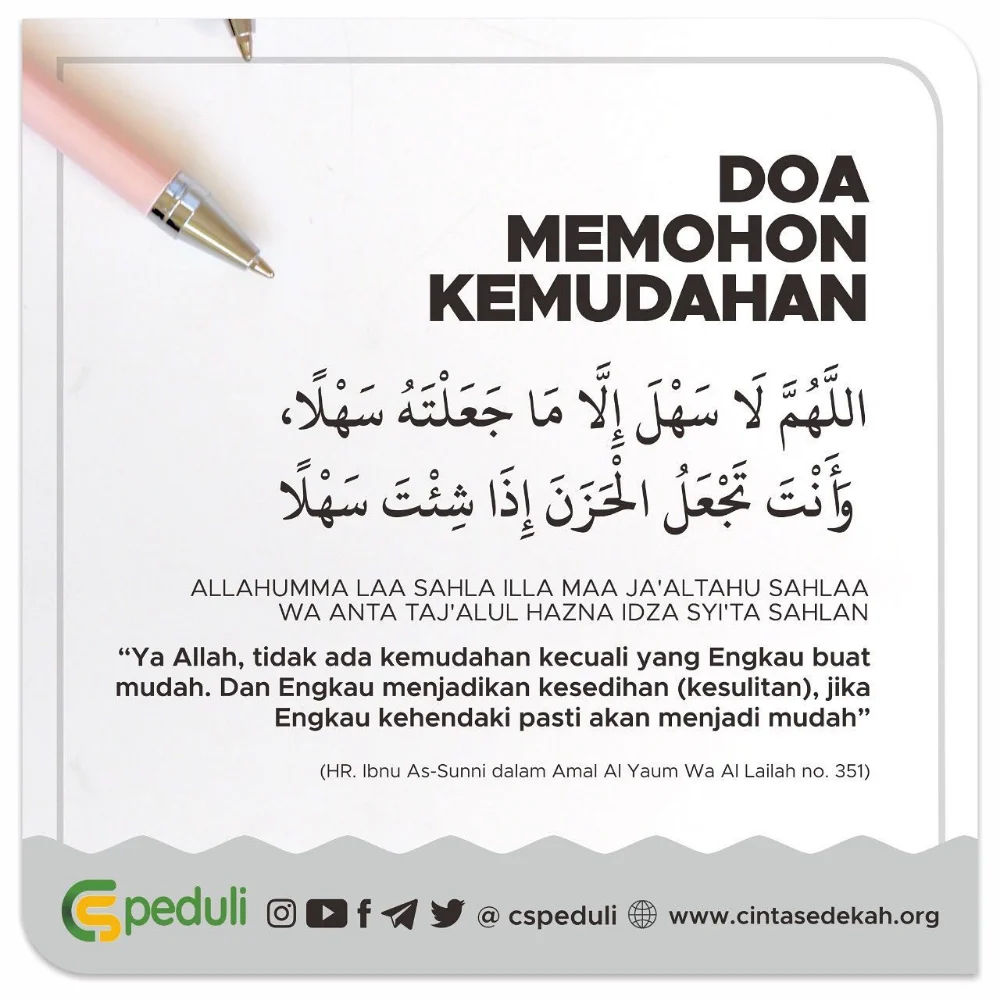 DOA
MEMOHON
KEMUDAHAN
اللَّهُمَّ لَا سَهْلَ إِلَّا مَا جَعَلْتَهُ سَهْلًا،
وَأَنْتَ تَجْعَلُ الْحَزَنَ إِذَا شِئْتَ سَهْلًا
ALLAHUMMA LAA SAHLA ILLA MAA JA'ALTAHU SAHLAA
WA ANTA TAJ'ALUL HAZNA IDZA SYI'TA SAHLAN
“Ya Allah, tidak ada kemudahan kecuali yang Engkau buat
mudah. Dan Engkau menjadikan kesedihan (kesulitan), jika
Engkau kehendaki pasti akan menjadi mudah”
(HR. Ibnu As-Sunni dalam Amal Al Yaum Wa Al Lailah no. 351)
CS peduli @ cspeduli www.cintasedekah.org